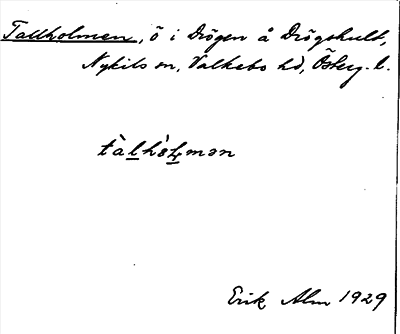 Tallholmen, ö i Drögen å Drögshult,
Nykils sn, Valkebo hd, Österg. l.
tàlhòlmən
Erik Alm 1929